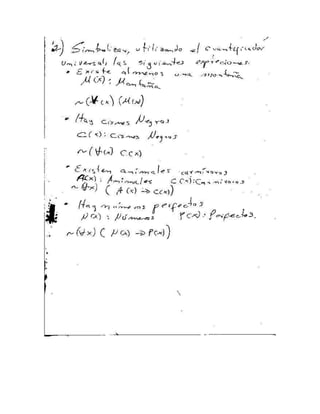 2) Simbolizar, utilizando el cuantificador
Universal, las siguientes expresiones.
• Existe al menos una montaña
M(x): Montaña
~(∀(x) (M(x)
• Hay cisnes Negros
C(x): Cisnes Negros
~(∀(x) C(x)
• Existen animales carnívoros
A(x): Animales C(x): Carnívoros
~(∀x) (A(x) → C(x))
• Hay números perfectos
N(x): Números P(x): Perfectos.
~(∀x) (N(x) → P(x))